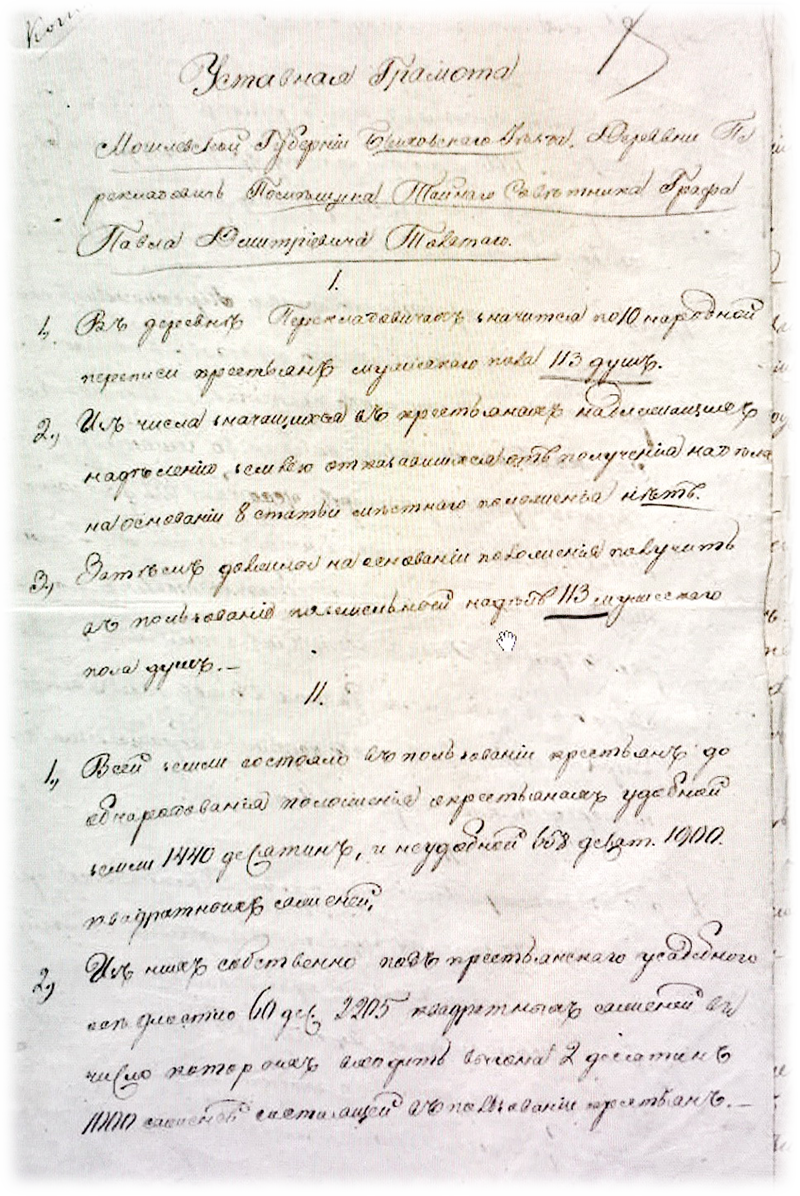 Копія
Уставная Грамота
Могилевской Губерніи Быховскаго Уѣзда. Деревни Пе
рекладовичь Помѣщика Тайнаго Совѣтника Графа
Павла Дмитріевича Толстаго.
I.
1, Въ деревнѣ Перекладовичахъ значится по 10 народной
переписи крестьянъ мужескаго пола 113 душъ.
2, Изъ числа значащихся въ крестьянахъ надлежащихъ
надѣленію, землею отказавшихся отъ полученія надѣла
на основаніи 8 статьи мѣстнаго положенія нѣтъ.
3, Затѣмъ должно на основаніи положенія получить
въ пользованіе поземельной надѣлъ 113 мужескаго
пола душъ. —
II.
1, Всей земли состояло въ пользованіи крестьянъ до
обнародованія положенія о крестьянахъ удобной
земли 1440 десятинъ, и неудобной десят. 1900.
квадратныхъ саженей,
2, Изъ нихъ собственно подъ крестьянскаго усадебного
60 дес. 2205 квадратныхъ саженей въ
число которыхъ входитъ выгона 2 десятинъ
1000 саженей состоящей въ пользованіи крестьянъ. —